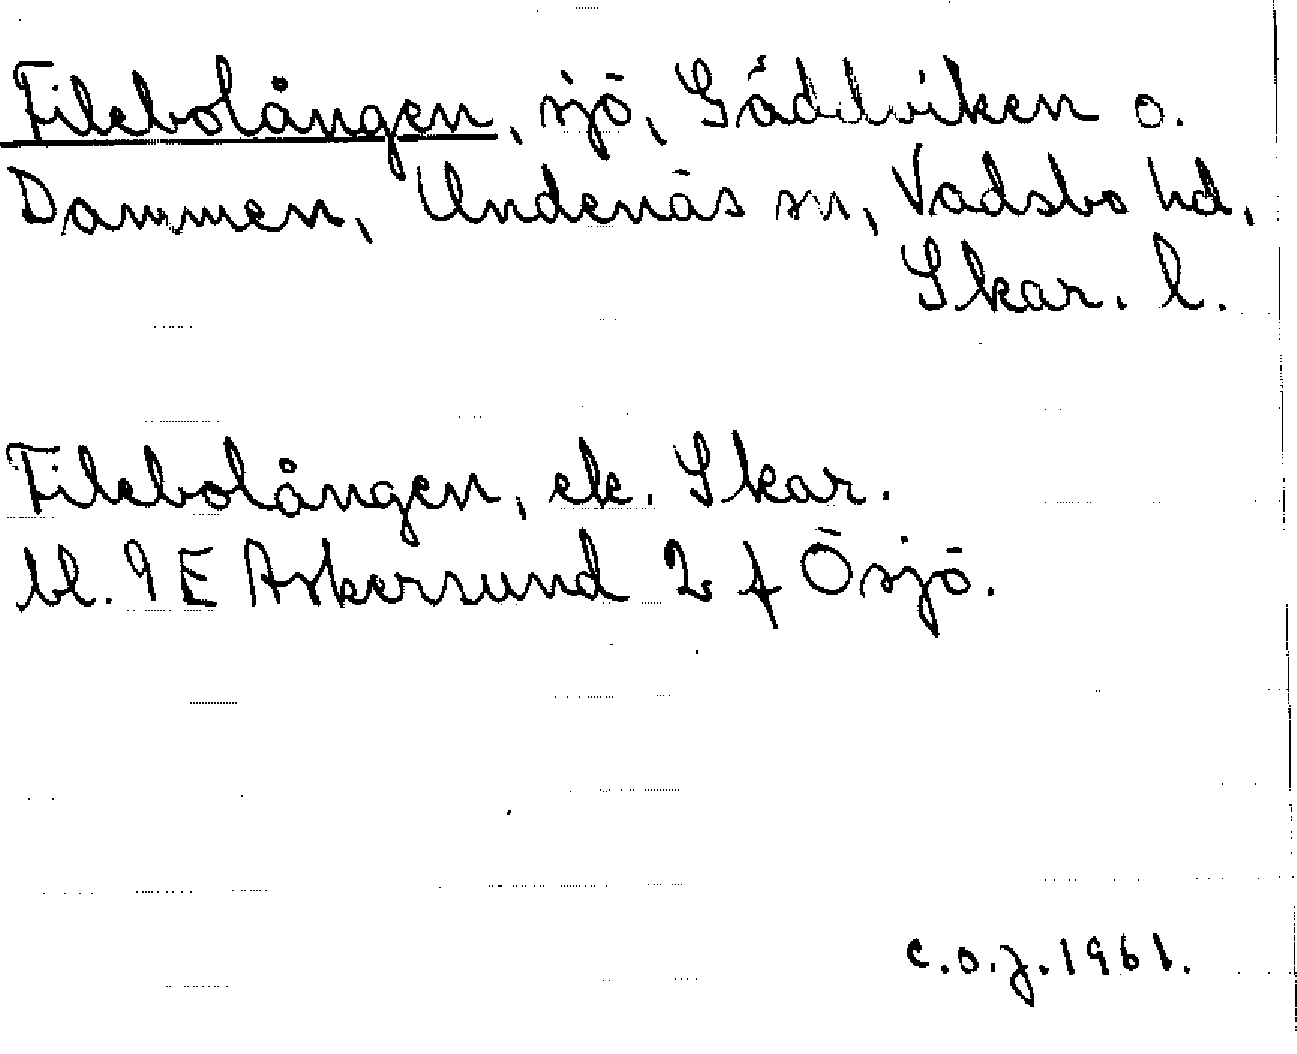 Filebolången, sjö, Gäddviken o.
Dammen, Undenäs sn, Vadsbo hd,
Skar. l.
Filebolången, ek. Skar.
bl. 9E Askersund 2 f Ö sjö.
c.o.j. 1961.